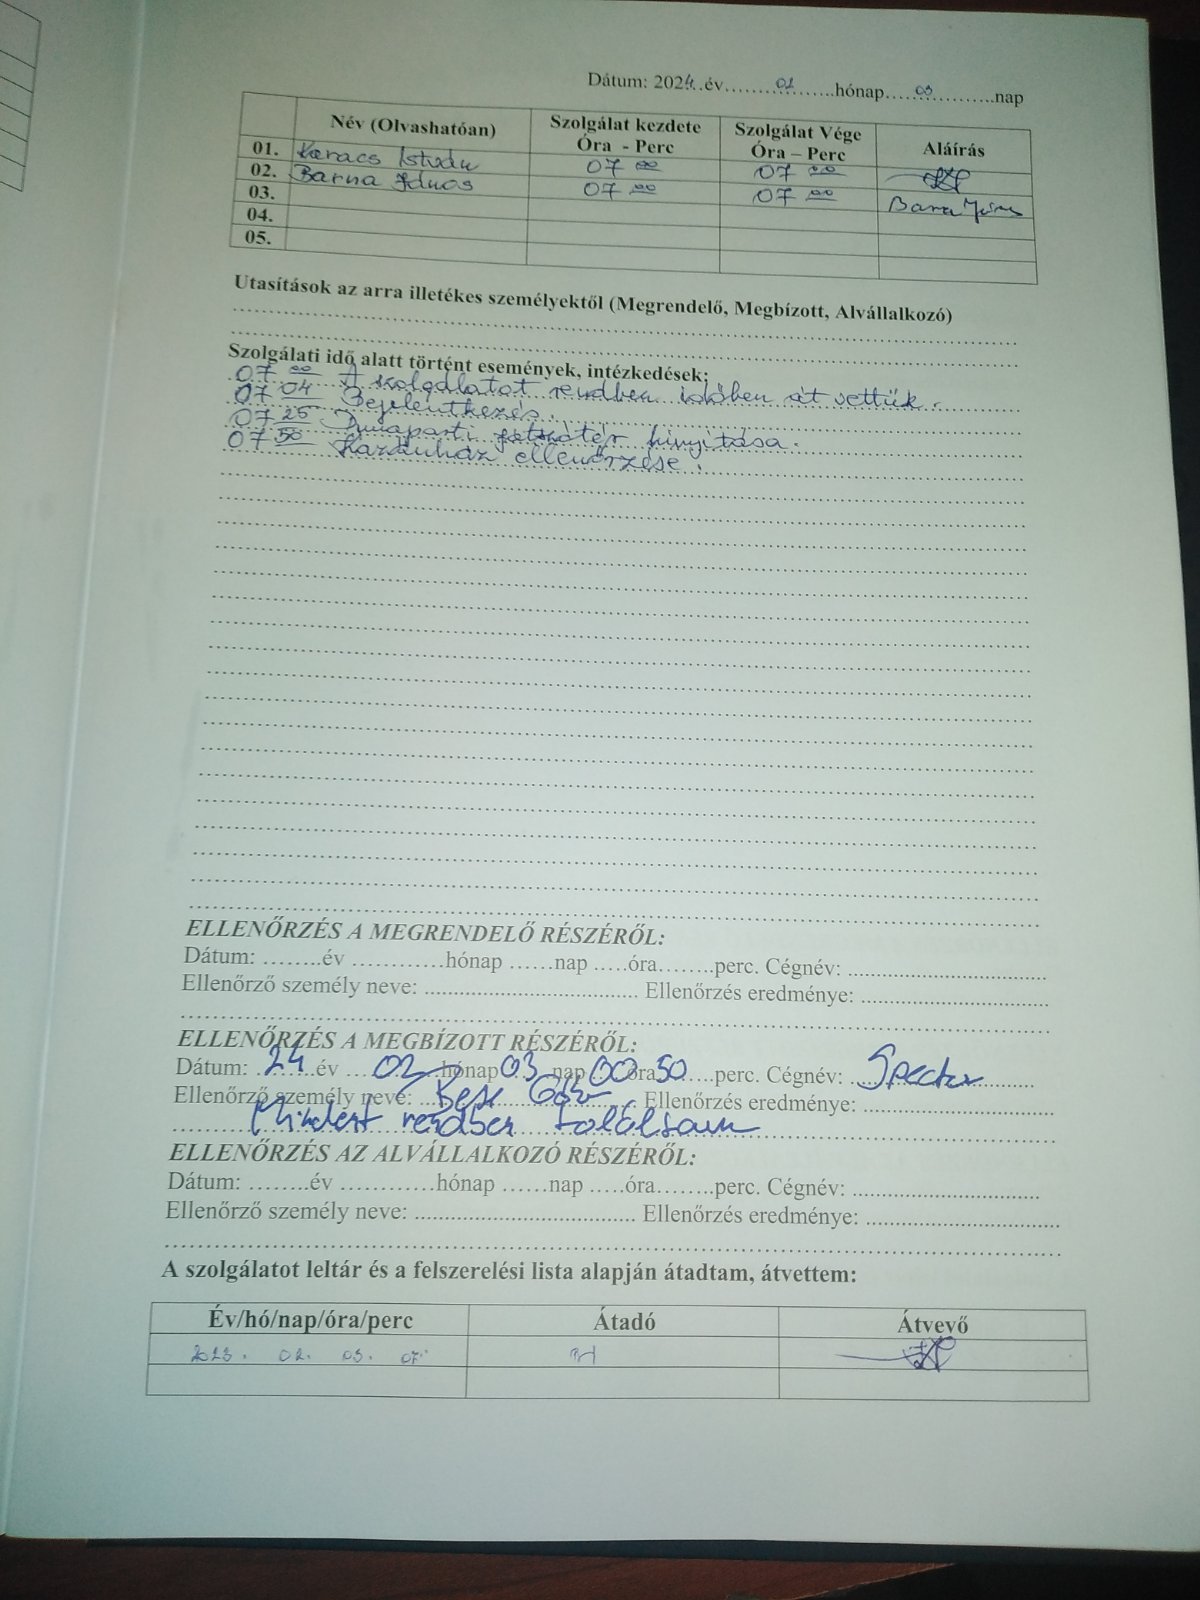 Dátum: 2024..év..........02..........hónap......03..........nap
Név (Olvashatóan) Szolgálat kezdete Óra - Perc Szolgálat Vége Óra – Perc Aláírás
01. István 07 00 07 00
02. Barna János 07 00 07 00 Barna János
03.
04.
05.
Utasítások az arra illetékes személyektől (Megrendelő, Megbízott, Alvállalkozó)
Szolgálati idő alatt történt események, intézkedések:
07 00 A szolgálatot rendben időben át vettük.
07 04 Bejelentkezés.
07 25 Dunaparti kinyitása.
07 50 Kazánház ellenőrzése.
ELLENŐRZÉS A MEGRENDELŐ RÉSZÉRŐL:
Dátum: ........év ............hónap ......nap .....óra.......perc. Cégnév: ..............................
Ellenőrző személy neve: .................................. Ellenőrzés eredménye: ..............................
ELLENŐRZÉS A MEGBÍZOTT RÉSZÉRŐL:
Dátum: 24 év 02 hónap 03 nap 00 óra 50 perc. Cégnév: Spector
Ellenőrző személy neve: Ellenőrzés eredménye: ..............................
Mindent rendben találtam
ELLENŐRZÉS AZ ALVÁLLALKOZÓ RÉSZÉRŐL:
Dátum: ........év ............hónap ......nap .....óra.......perc. Cégnév: ..............................
Ellenőrző személy neve: .................................. Ellenőrzés eredménye: ..............................
A szolgálatot leltár és a felszerelési lista alapján átadtam, átvettem:
Év/hó/nap/óra/perc Átadó Átvevő
2023. 02. 03. 07